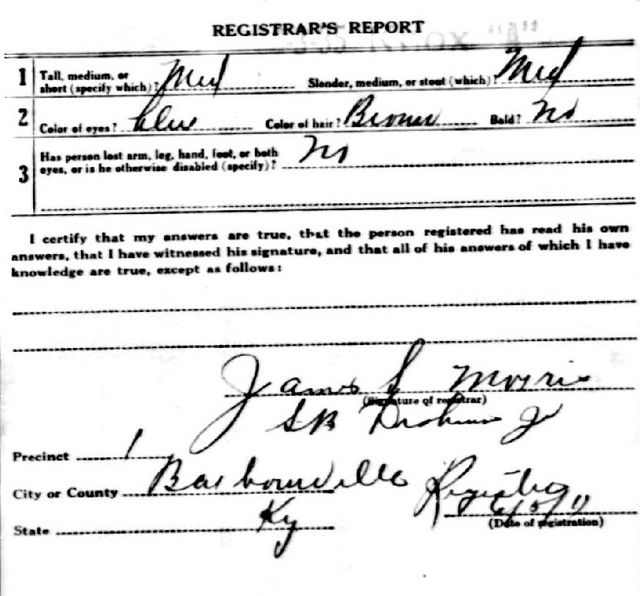 REGISTRAR'S REPORT
1 Tall, medium, or short (specify which)? Med Slender, medium, or stout (which)? Med
2 Color of eyes? blue Color of hair? Brown Bald? No
3 Has person lost arm, leg, hand, foot, or both eyes, or is he otherwise disabled (specify)? No
I certify that my answers are true, that the person registered has read his own
answers, that I have witnessed his signature, and that all of his answers of which I have
knowledge are true, except as follows:
James S Morris
(Signature of registrar)
S B
Jr
Precinct 1
City or County Barbourville
State Ky
(Date of registration)